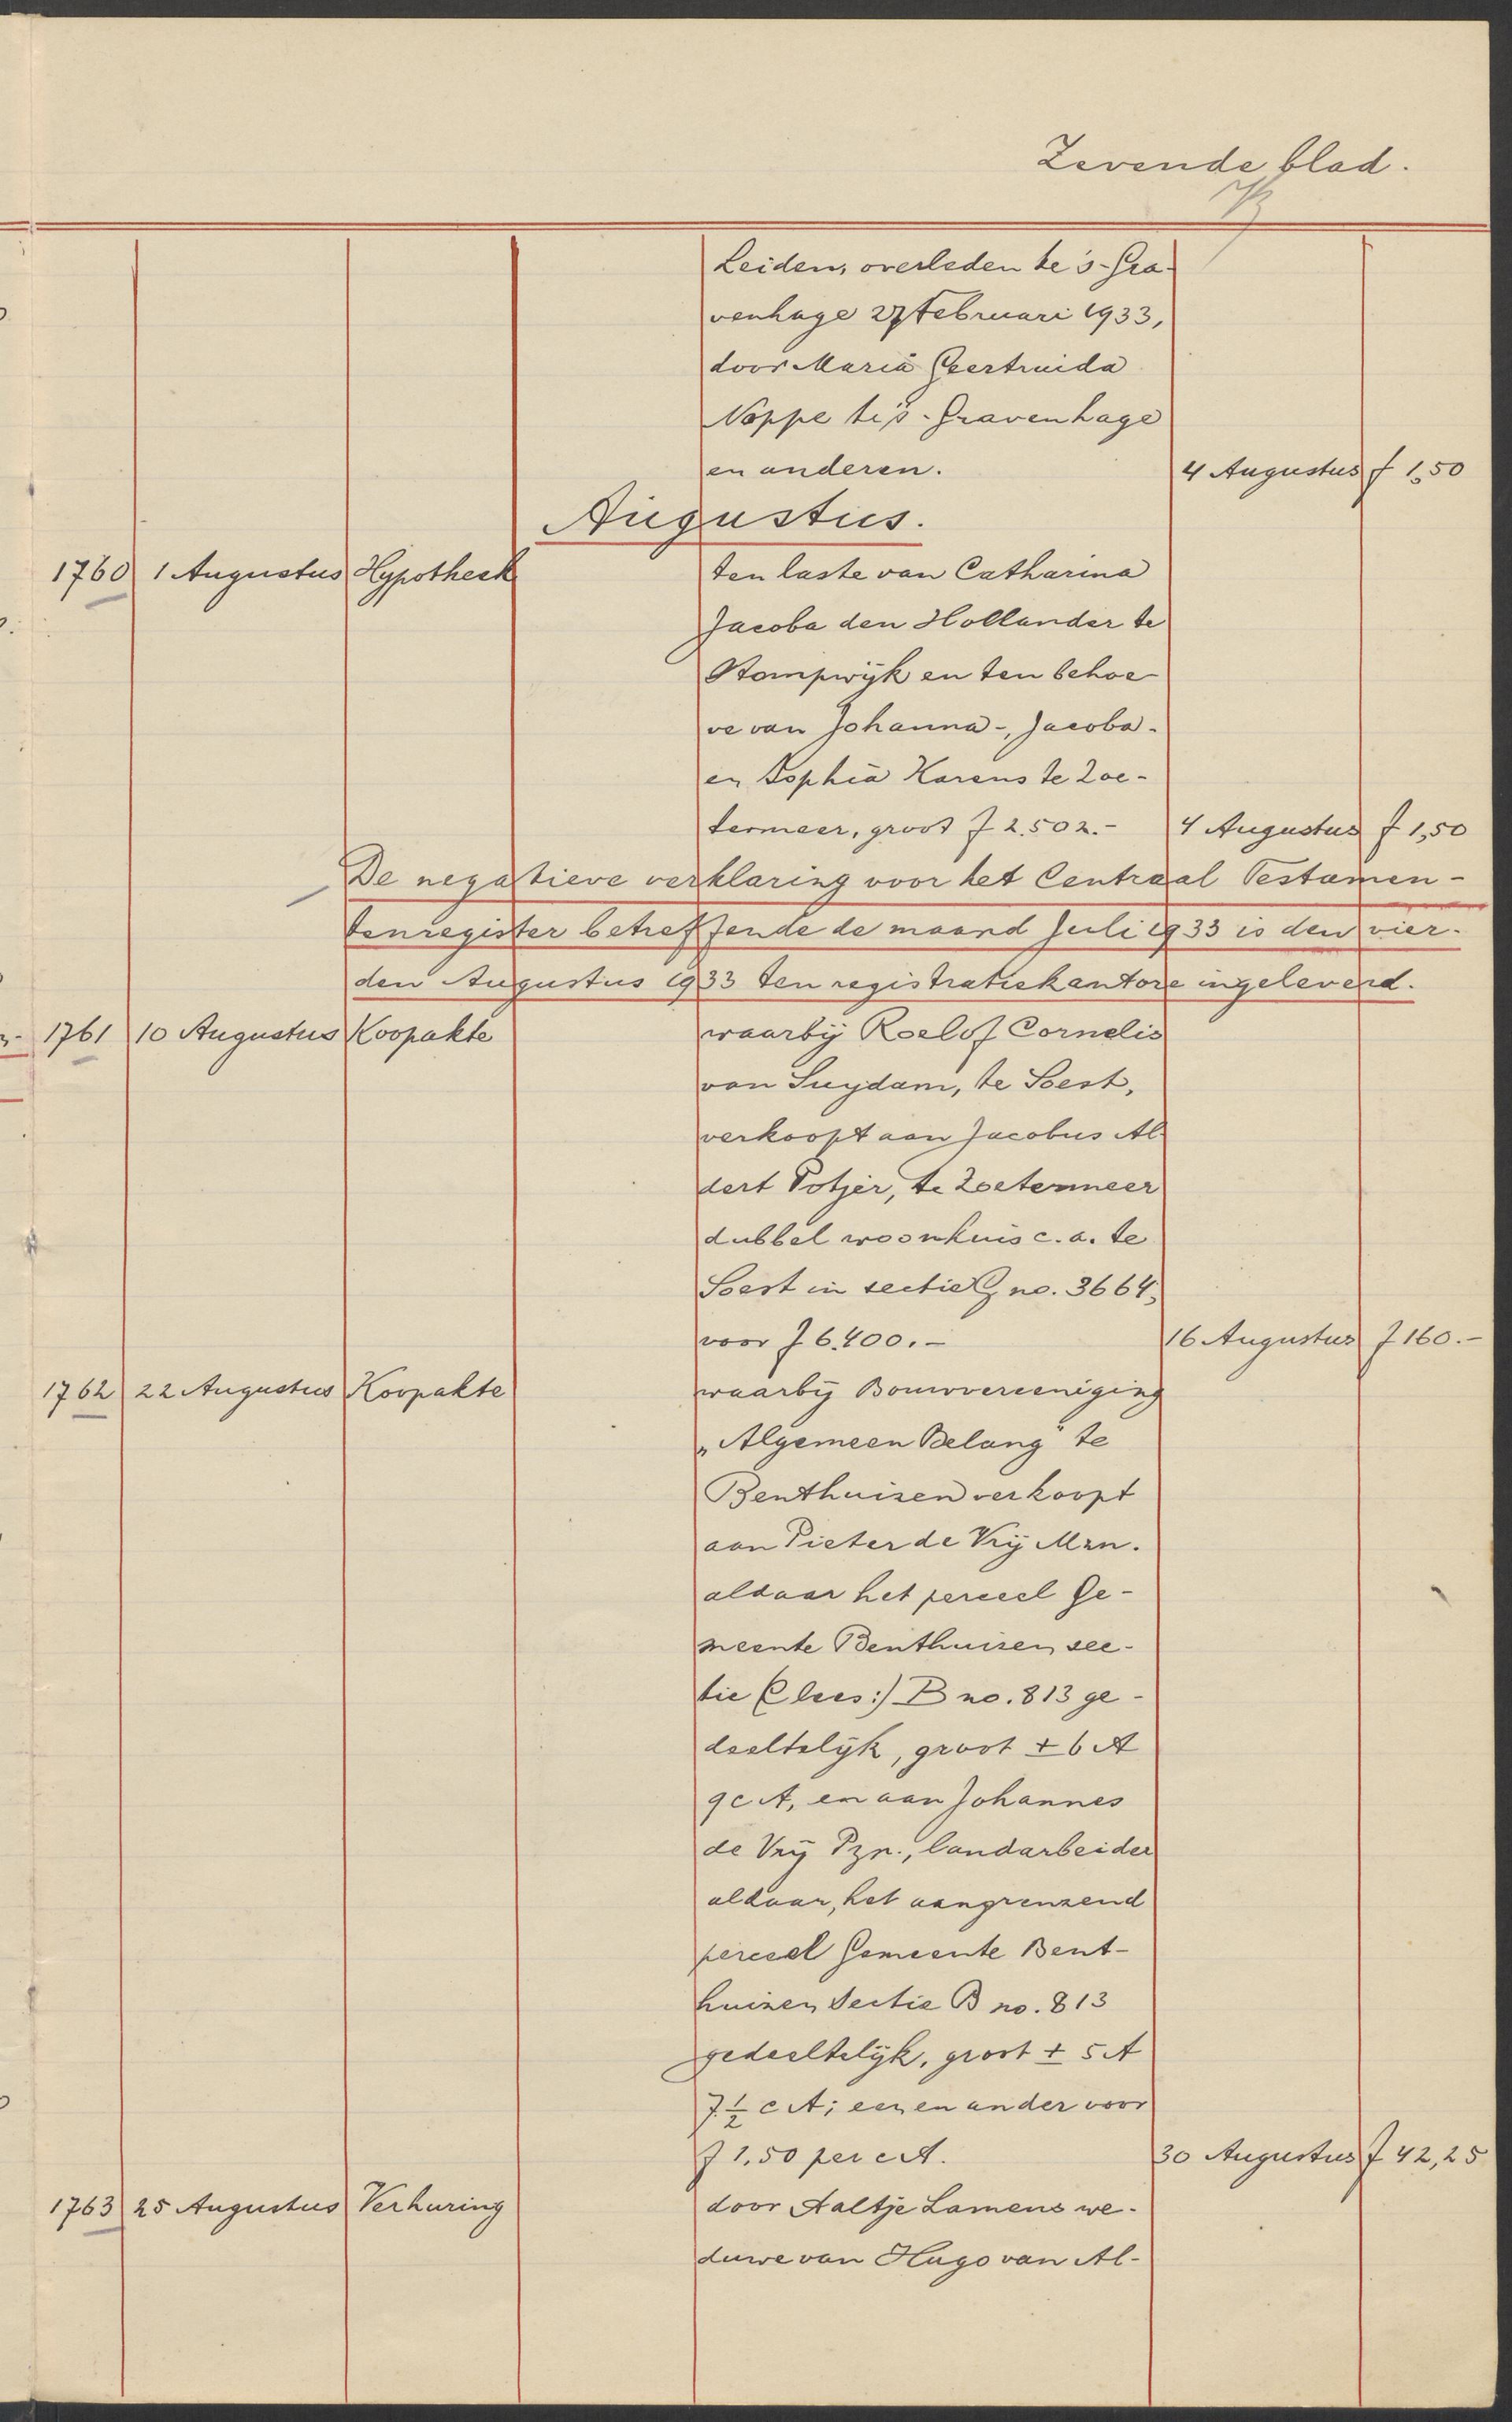 Zevende blad.
Leiden, overleden te 's-Gra-
venhage 27 Februari 1933,
door Maria Geertruida
Noppe te 's-Gravenhage
en anderen. 4 Augustus f 1,50
Augustus.
1760 1 Augustus Hypotheek ten laste van Catharina
Jacoba den Hollander te
Stompwijk en ten behoe
ve van Johanna-, Jacoba-
en Sophia Karens te Zoe-
termeer, groot f 2.502.- 4 Augustus f 1,50
De negatieve verklaring voor het Centraal Testamen-
tenregister betreffende de maand Juli 1933 is den vier-
den Augustus 1933 ten registratiekantore ingeleverd.
1761 10 Augustus Koopakte waarbij Roelof Cornelis
van Suydam, te Soest,
verkoopt aan Jacobus Al-
dert Potjer, te Zoetermeer
dubbel woonhuis c.a. te
Soest in sectie G no. 3664,
voor f 6.400.- 16 Augustus f 160.-
1762 22 Augustus Koopakte waarbij Bouwvereeniging
„Algemeen Belang" te
Benthuizen verkoopt
aan Pieter de Vrij Mzn.
aldaar het perceel Ge-
meente Benthuizen sec-
tie (lees:) B no. 813 ge-
deeltelijk, groot ± 6 A
9 cA, en aan Johannes
de Vrij Pzn., landarbeider
aldaar, het aangrenzend
perceel Gemeente Bent-
huizen Sectie B no. 813
gedeeltelijk, groot ± 5 A
7½ cA; een en ander voor
f 1.50 per cA. 30 Augustus f 42,25
1763 25 Augustus Verhuring door Aaltje Lamens we-
duwe van Hugo van Al-